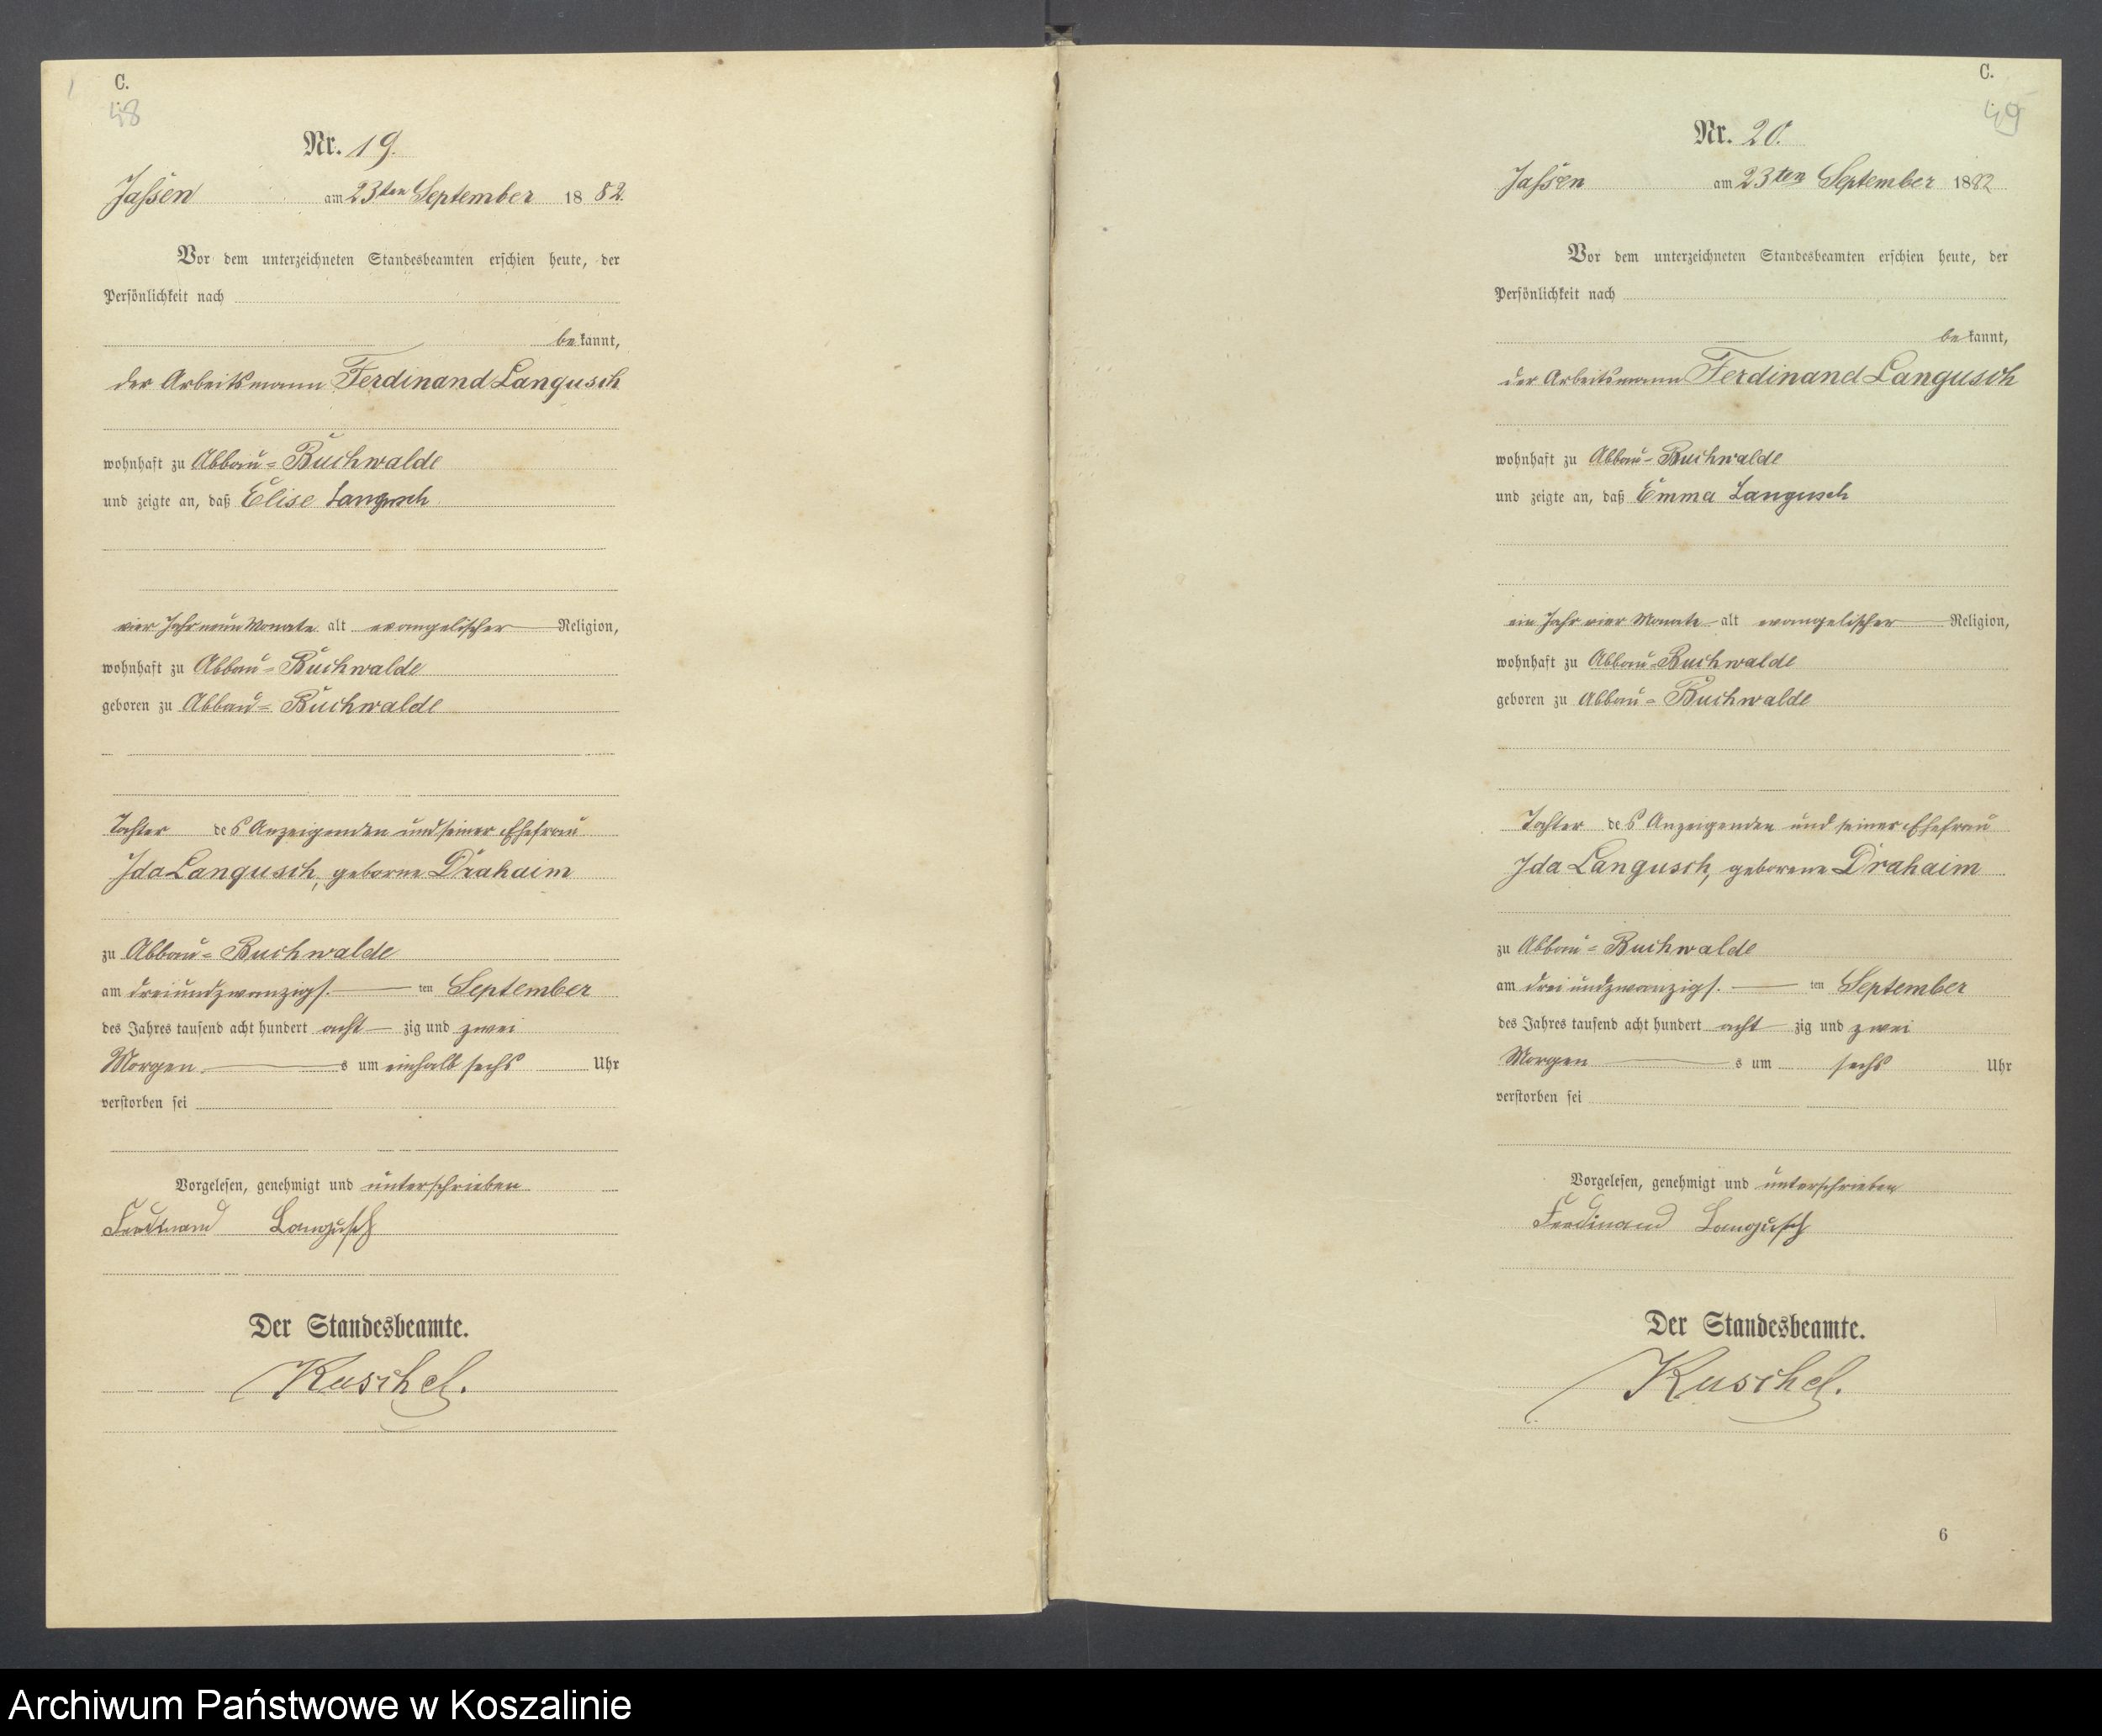 C.
48
Nr. 19.
Jassen am 23ten September 1882.
Vor dem unterzeichneten Standesbeamten erschien heute, der
Persönlichkeit nach
bekannt,
der Arbeitsmann Ferdinand Langusch
wohnhaft zu Abbau-Buchwalde
und zeigte an, daß Elise Langusch
vier Jahr neun Monate alt evangelischer Religion,
wohnhaft zu Abbau-Buchwalde
geboren zu Abbau-Buchwalde
Tochter des Anzeigenden und seiner Ehefrau
Ida Langusch, geborne Drahaim
zu Abbau-Buchwalde
am dreiundzwanzigs. ten September
des Jahres tausend acht hundert achtzig und zwei
Morgens um einhalb sechs Uhr
verstorben sei
Vorgelesen, genehmigt und unterschrieben
Ferdinand Langusch
Der Standesbeamte.
Kuschel.
C.
49
Nr. 20.
Jassen am 23ten September 1882
Vor dem unterzeichneten Standesbeamten erschien heute, der
Persönlichkeit nach
bekannt,
der Arbeitsmann Ferdinand Langusch
wohnhaft zu Abbau-Buchwalde
und zeigte an, daß Emma Langusch
ein Jahr vier Monate alt evangelischer Religion,
wohnhaft zu Abbau-Buchwalde
geboren zu Abbau-Buchwalde
Tochter des Anzeigenden und seiner Ehefrau
Ida Langusch, geborene Drahaim
zu Abbau-Buchwalde
am dreiundzwanzigs. ten September
des Jahres tausend acht hundert achtzig und zwei
Morgens um sechs Uhr
verstorben sei
Vorgelesen, genehmigt und unterschrieben
Ferdinand Langusch
Der Standesbeamte.
Kuschel.
6
Archiwum Państwowe w Koszalinie